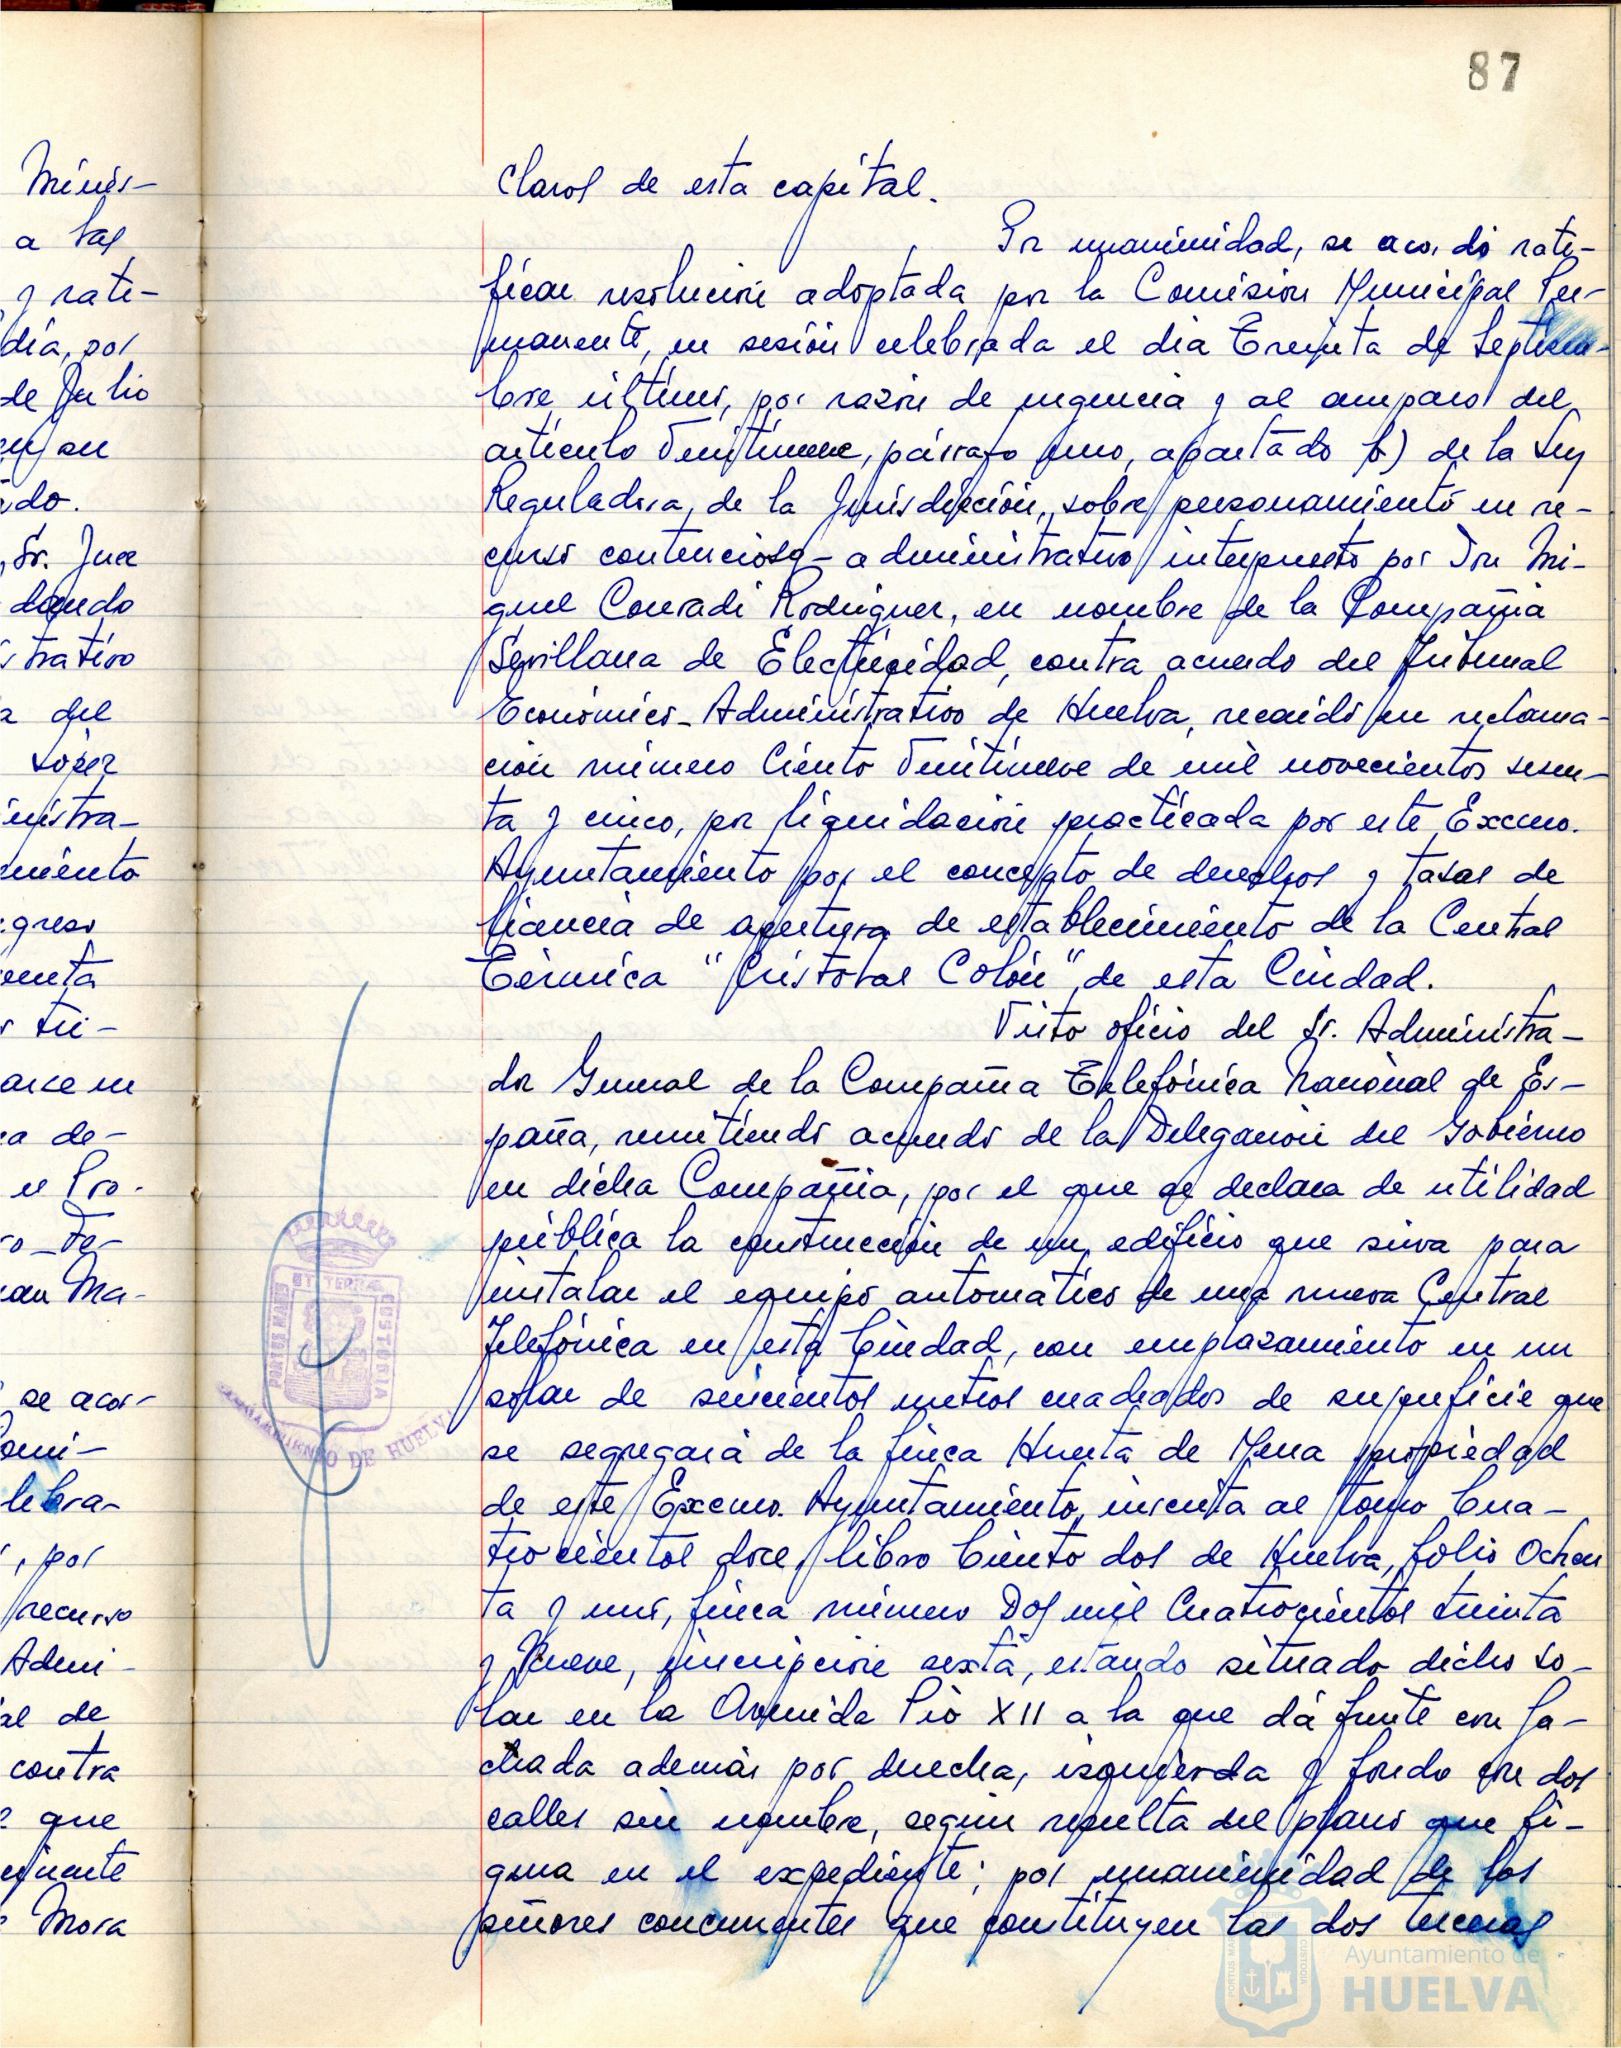 87
Minis-
a las
y rati-
día, por
de Julio
en su
Sr. Juez
dando
trativo
del
López
nistra-
miento
greso
enta
de-
el Pro-
an Ma-
se acor-
lebra-
, por
recurso
Admi-
al de
contra
que
Mora
Claros de esta capital.
Por unanimidad, se acordó rati-
ficar resolución adoptada por la Comisión Municipal Per-
manente, en sesión celebrada el día Treinta de Septiem-
bre último, por razón de urgencia y al amparo del
artículo Veintinueve, párrafo uno, apartado b) de la Ley
Reguladora de la Jurisdicción, sobre personamiento en re-
curso contencioso-administrativo interpuesto por Don Mi-
guel Conradi Rodríguez, en nombre de la Compañía
Sevillana de Electricidad, contra acuerdo del Tribunal
Económico-Administrativo de Huelva, recaído en reclama-
ción número Ciento Veintinueve de mil novecientos sesen-
ta y cinco, por liquidación practicada por este Excmo.
Ayuntamiento por el concepto de derechos y tasas de
licencia de apertura de establecimiento de la Central
Térmica "Cristobal Colón" de esta Ciudad.
Visto oficio del Sr. Administra-
dor General de la Compañia Telefónica Nacional de Es-
paña, remitiendo acuerdo de la Delegación del Gobierno
en dicha Compañia, por el que se declara de utilidad
pública la construcción de un edificio que sirva para
instalar el equipo automático de una nueva Central
Telefónica en esta Ciudad, con emplazamiento en un
solar de seiscientos metros cuadrados de superficie que
se segregará de la finca Huerta de Mena propiedad
de este Excmo. Ayuntamiento, inscrita al tomo Cua-
trocientos doce, libro Ciento dos de Huelva, folio Ochen
ta y uno, finca número Dos mil Cuatrocientos treinta
y Nueve, inscripción sexta, estando situado dicho so-
lar en la Avenida Pio XII a la que dá frente con fa-
chada además por derecha, izquierda y fondo con dos
calles sin nombre, según resulta del plano que fi-
gura en el expediente; por unanimidad de los
señores concurrentes que constituyen las dos terceras
PORTUS MARIS ET TERRAE CUSTODIA
AYUNTAMIENTO DE HUELVA
Ayuntamiento de
HUELVA